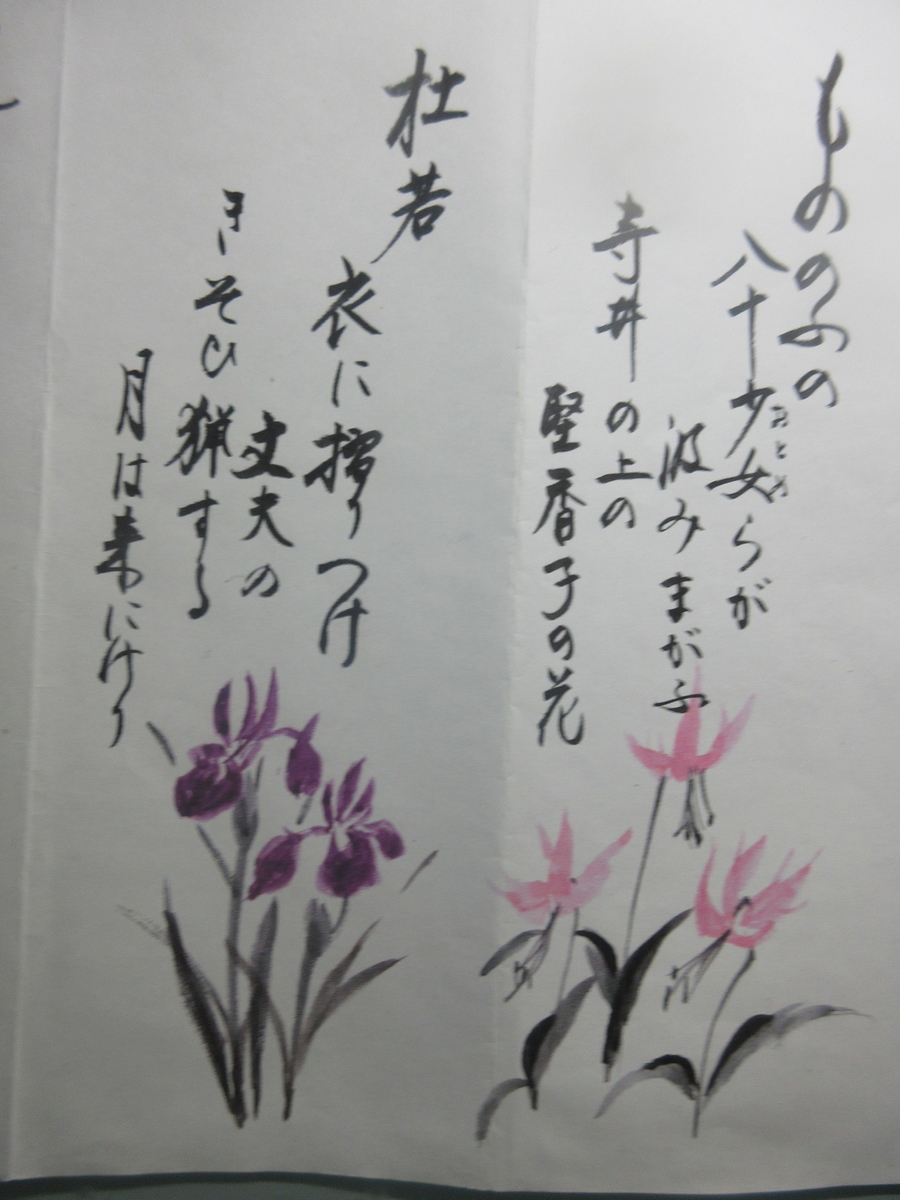 もののふの
八十少女らが
おとめ
汲みまがふ
寺井の上の
堅香子の花
杜若
衣に摺りつけ
丈夫の
きそひ猟する
月は来にけり